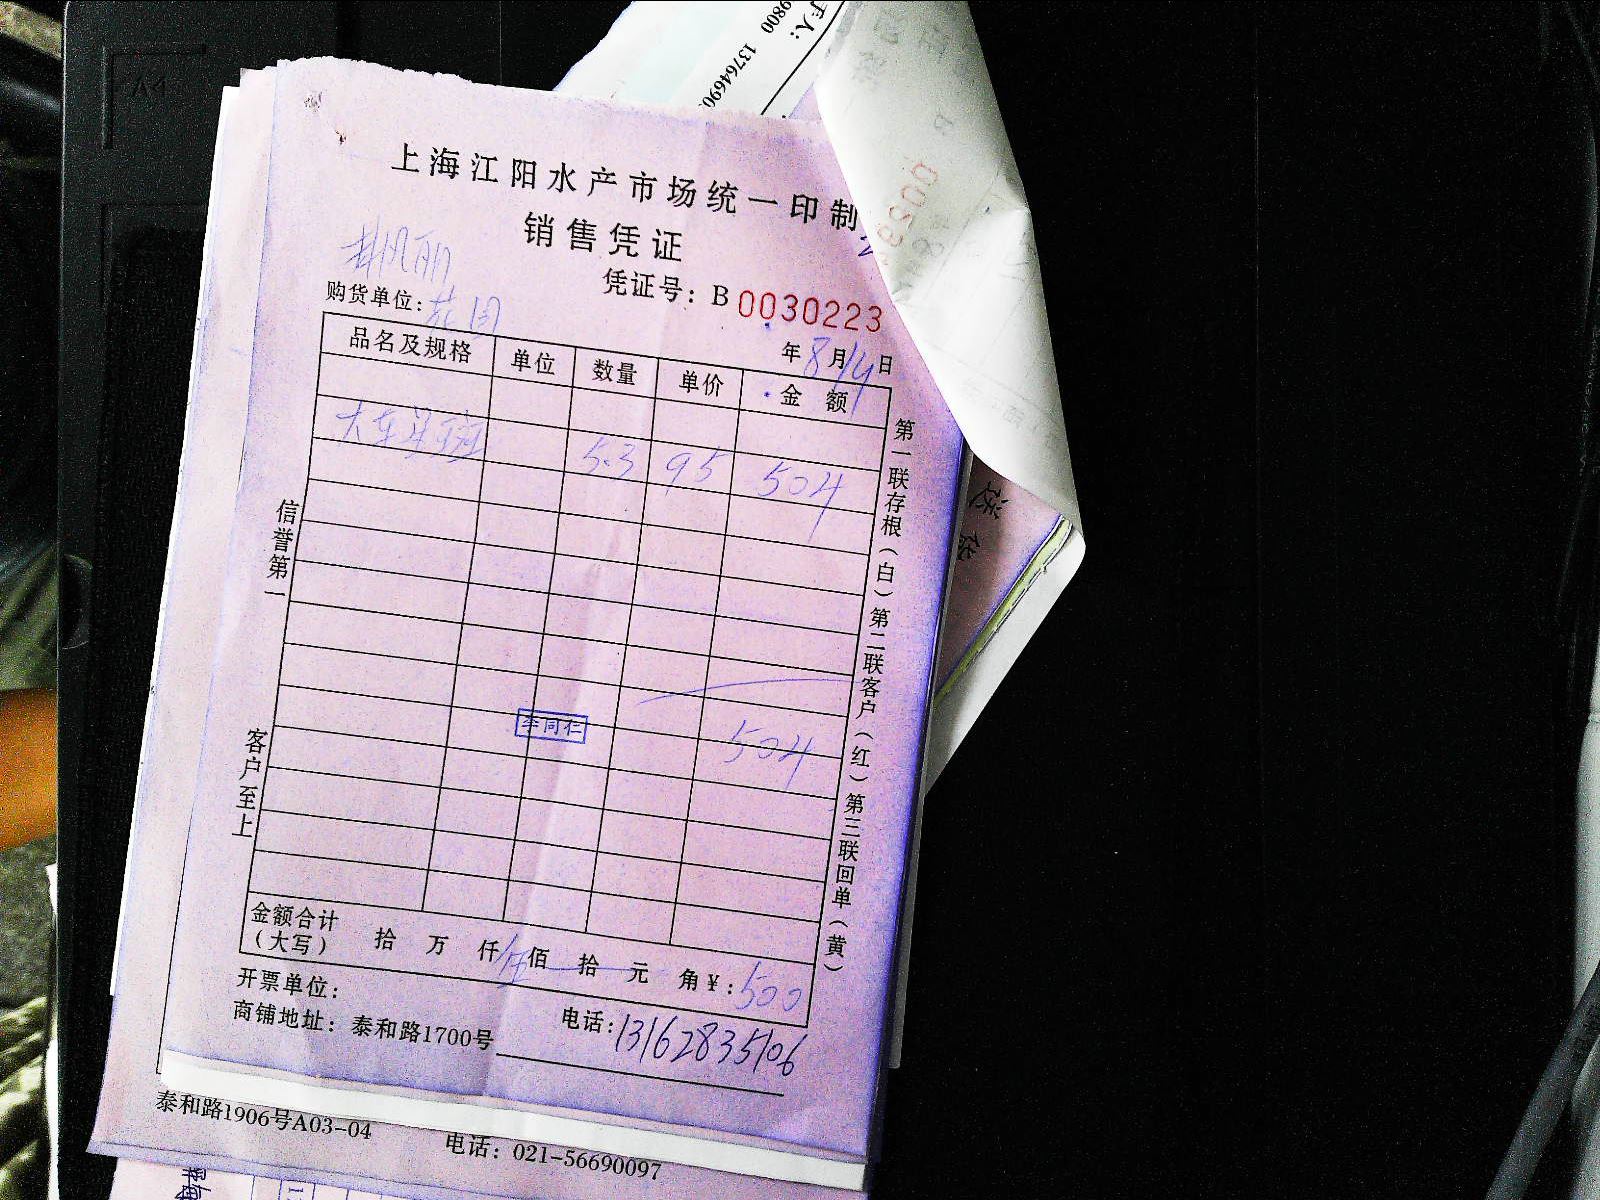 于人:
9800 1376469
上海江阳水产市场统一印制
销售凭证
凭证号: B 0030223
购货单位: 花园
年 8 月 14 日
品名及规格 单位 数量 单价 金额
大东星斑 5.3 95 504
504
李同仁
金额合计(大写) 拾 万 仟 伍 佰 拾 元 角 ¥: 500
开票单位:
商铺地址: 泰和路1700号
电话: 13162835106
信誉第一
客户至上
第一联存根(白) 第二联客户(红) 第三联回单(黄)
送货
泰和路1906号A03-04
电话: 021-56690097